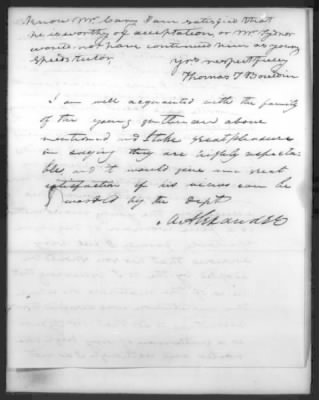 know Mr. Cary I am satisfied that
he is worthy of acceptation, or Mr. Sydnor
would not have continued him as young
Speeds tutor.
Yrs respectfully
Thomas T Bouldin
I am well acquainted with the family
of the young gentleman above
mentioned and I take great pleasure
in saying they are highly respecta-
ble, and it would give me great
satisfaction if his views can be
by the dept
A Alexander